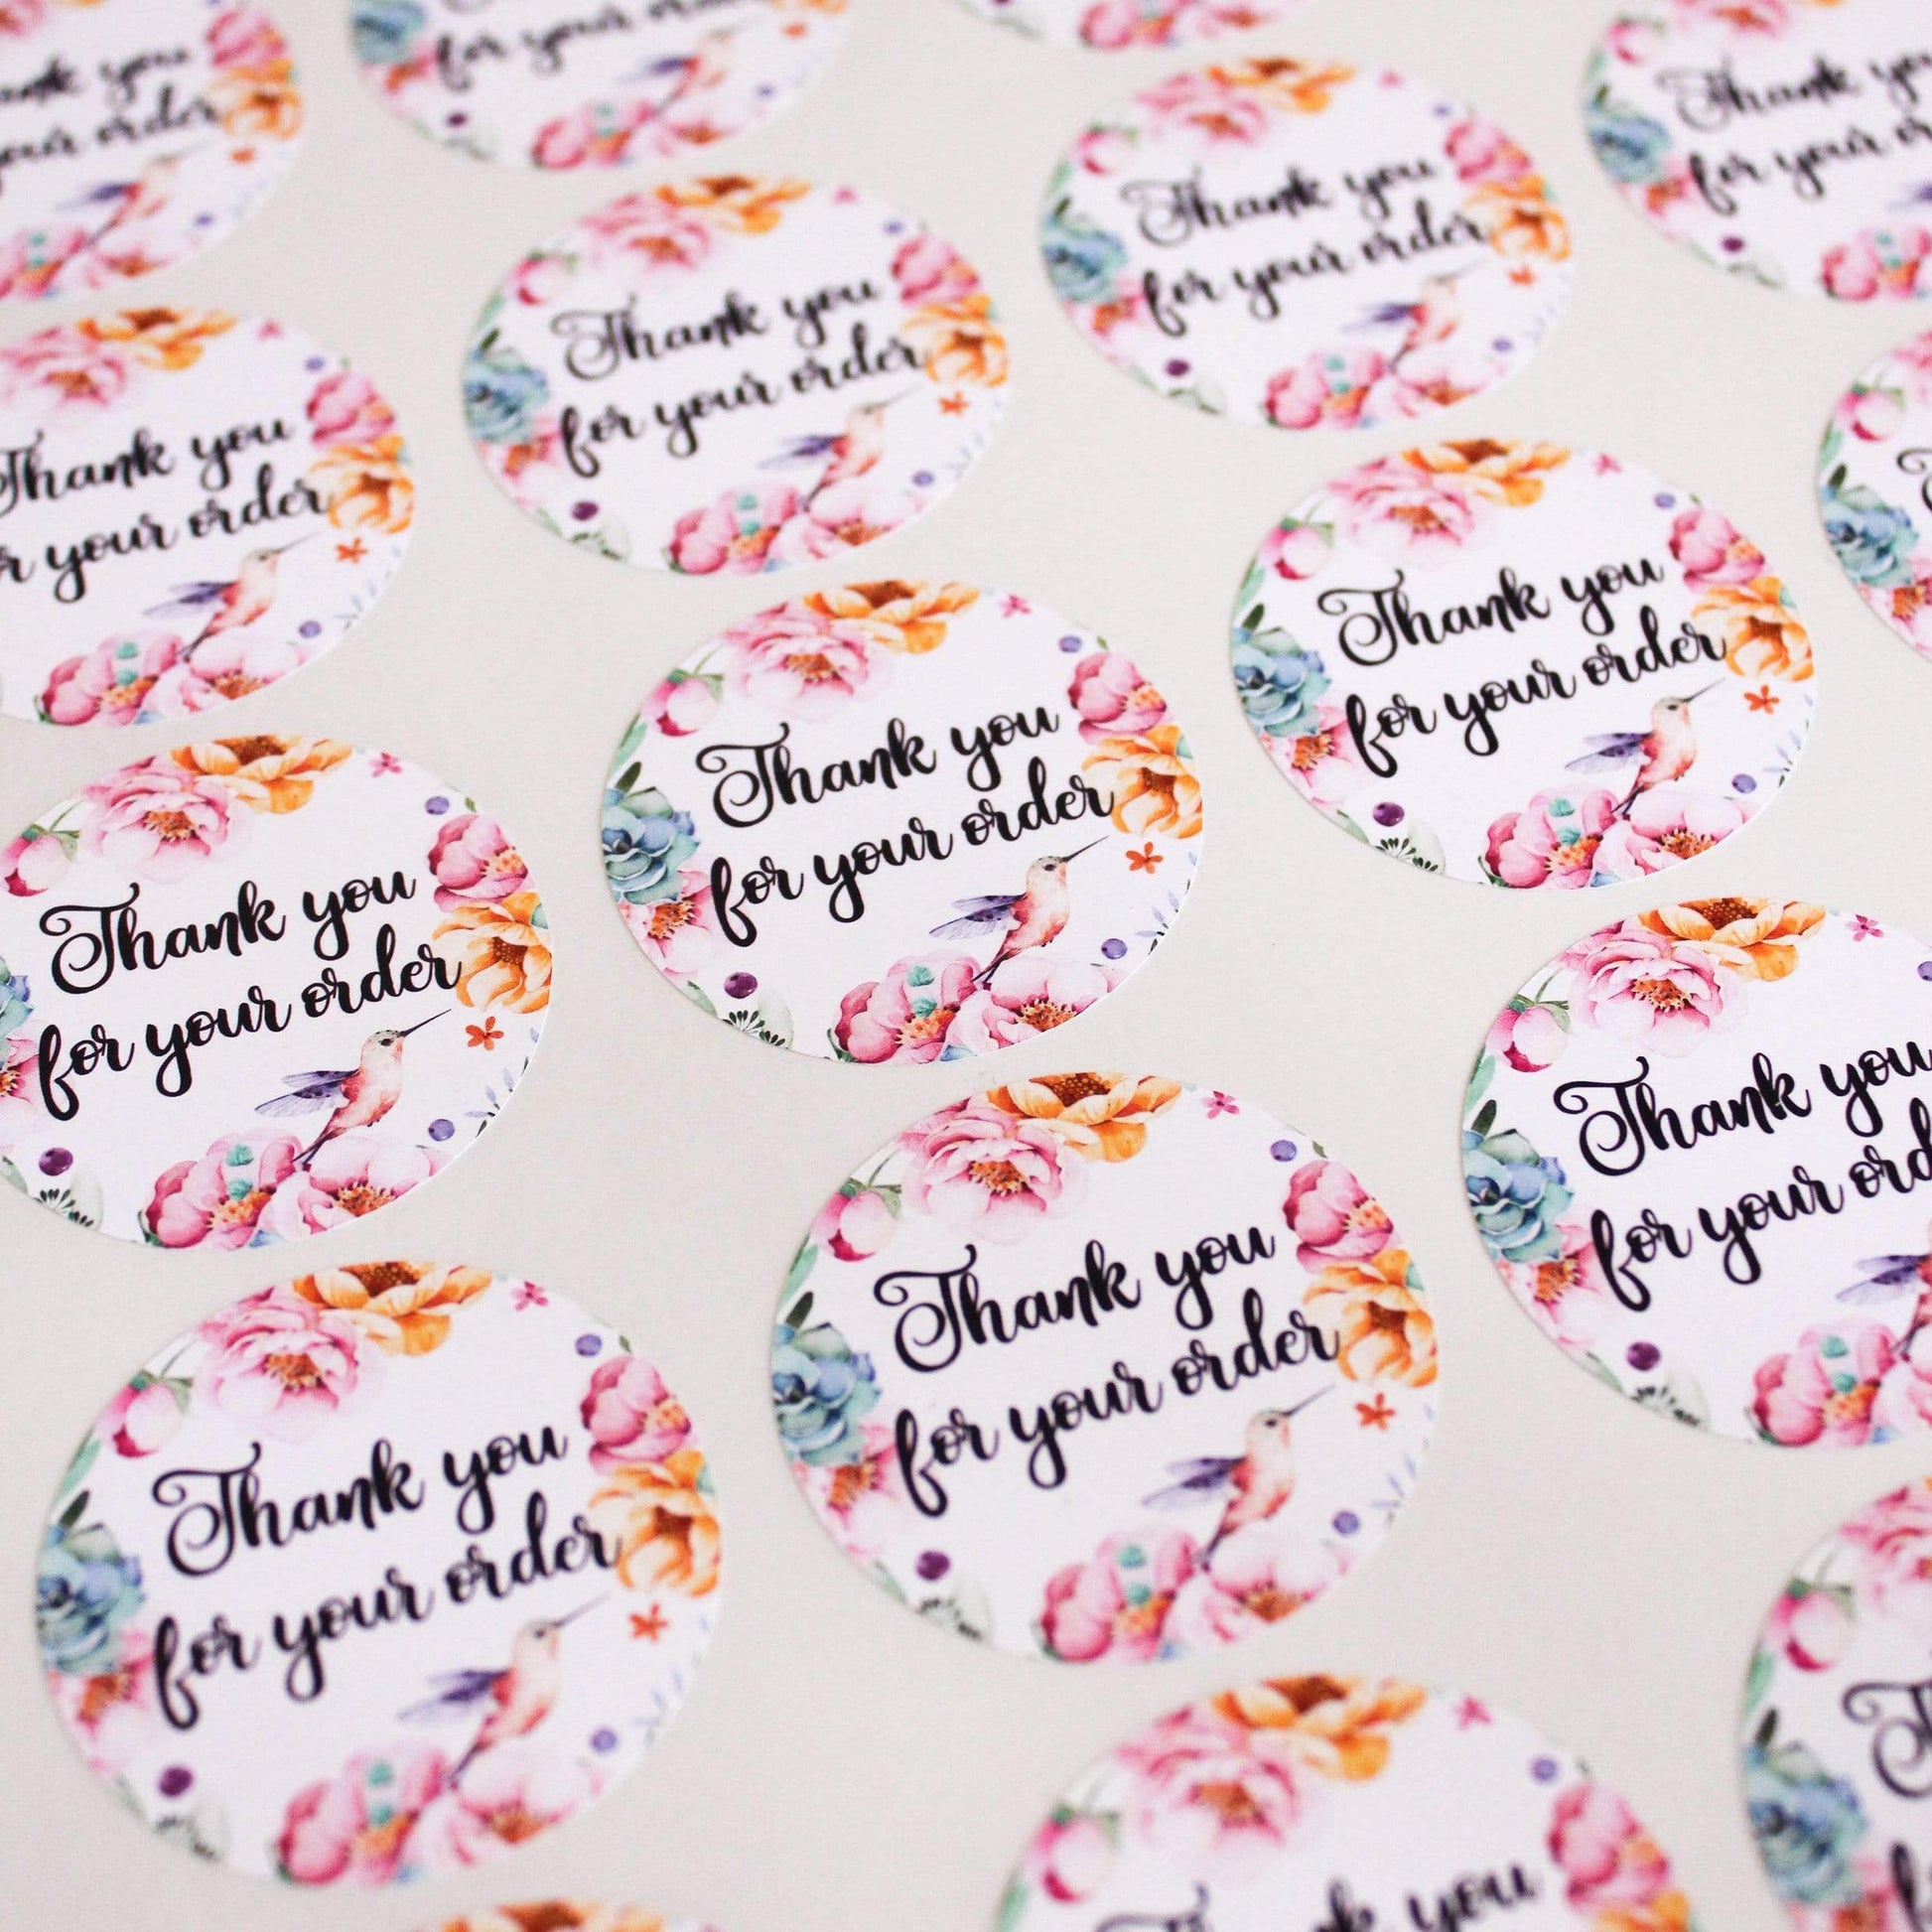 Thank you
your order
for your order
Thank you
for your
Thank you
for your order
Thank you
for your order
Thank you
your order
Thank you
for your order
Thank you
for your order
Thank you
for your order
Thank you
for your ord
Thank you
for your order
Thank you
for your order
Thank you